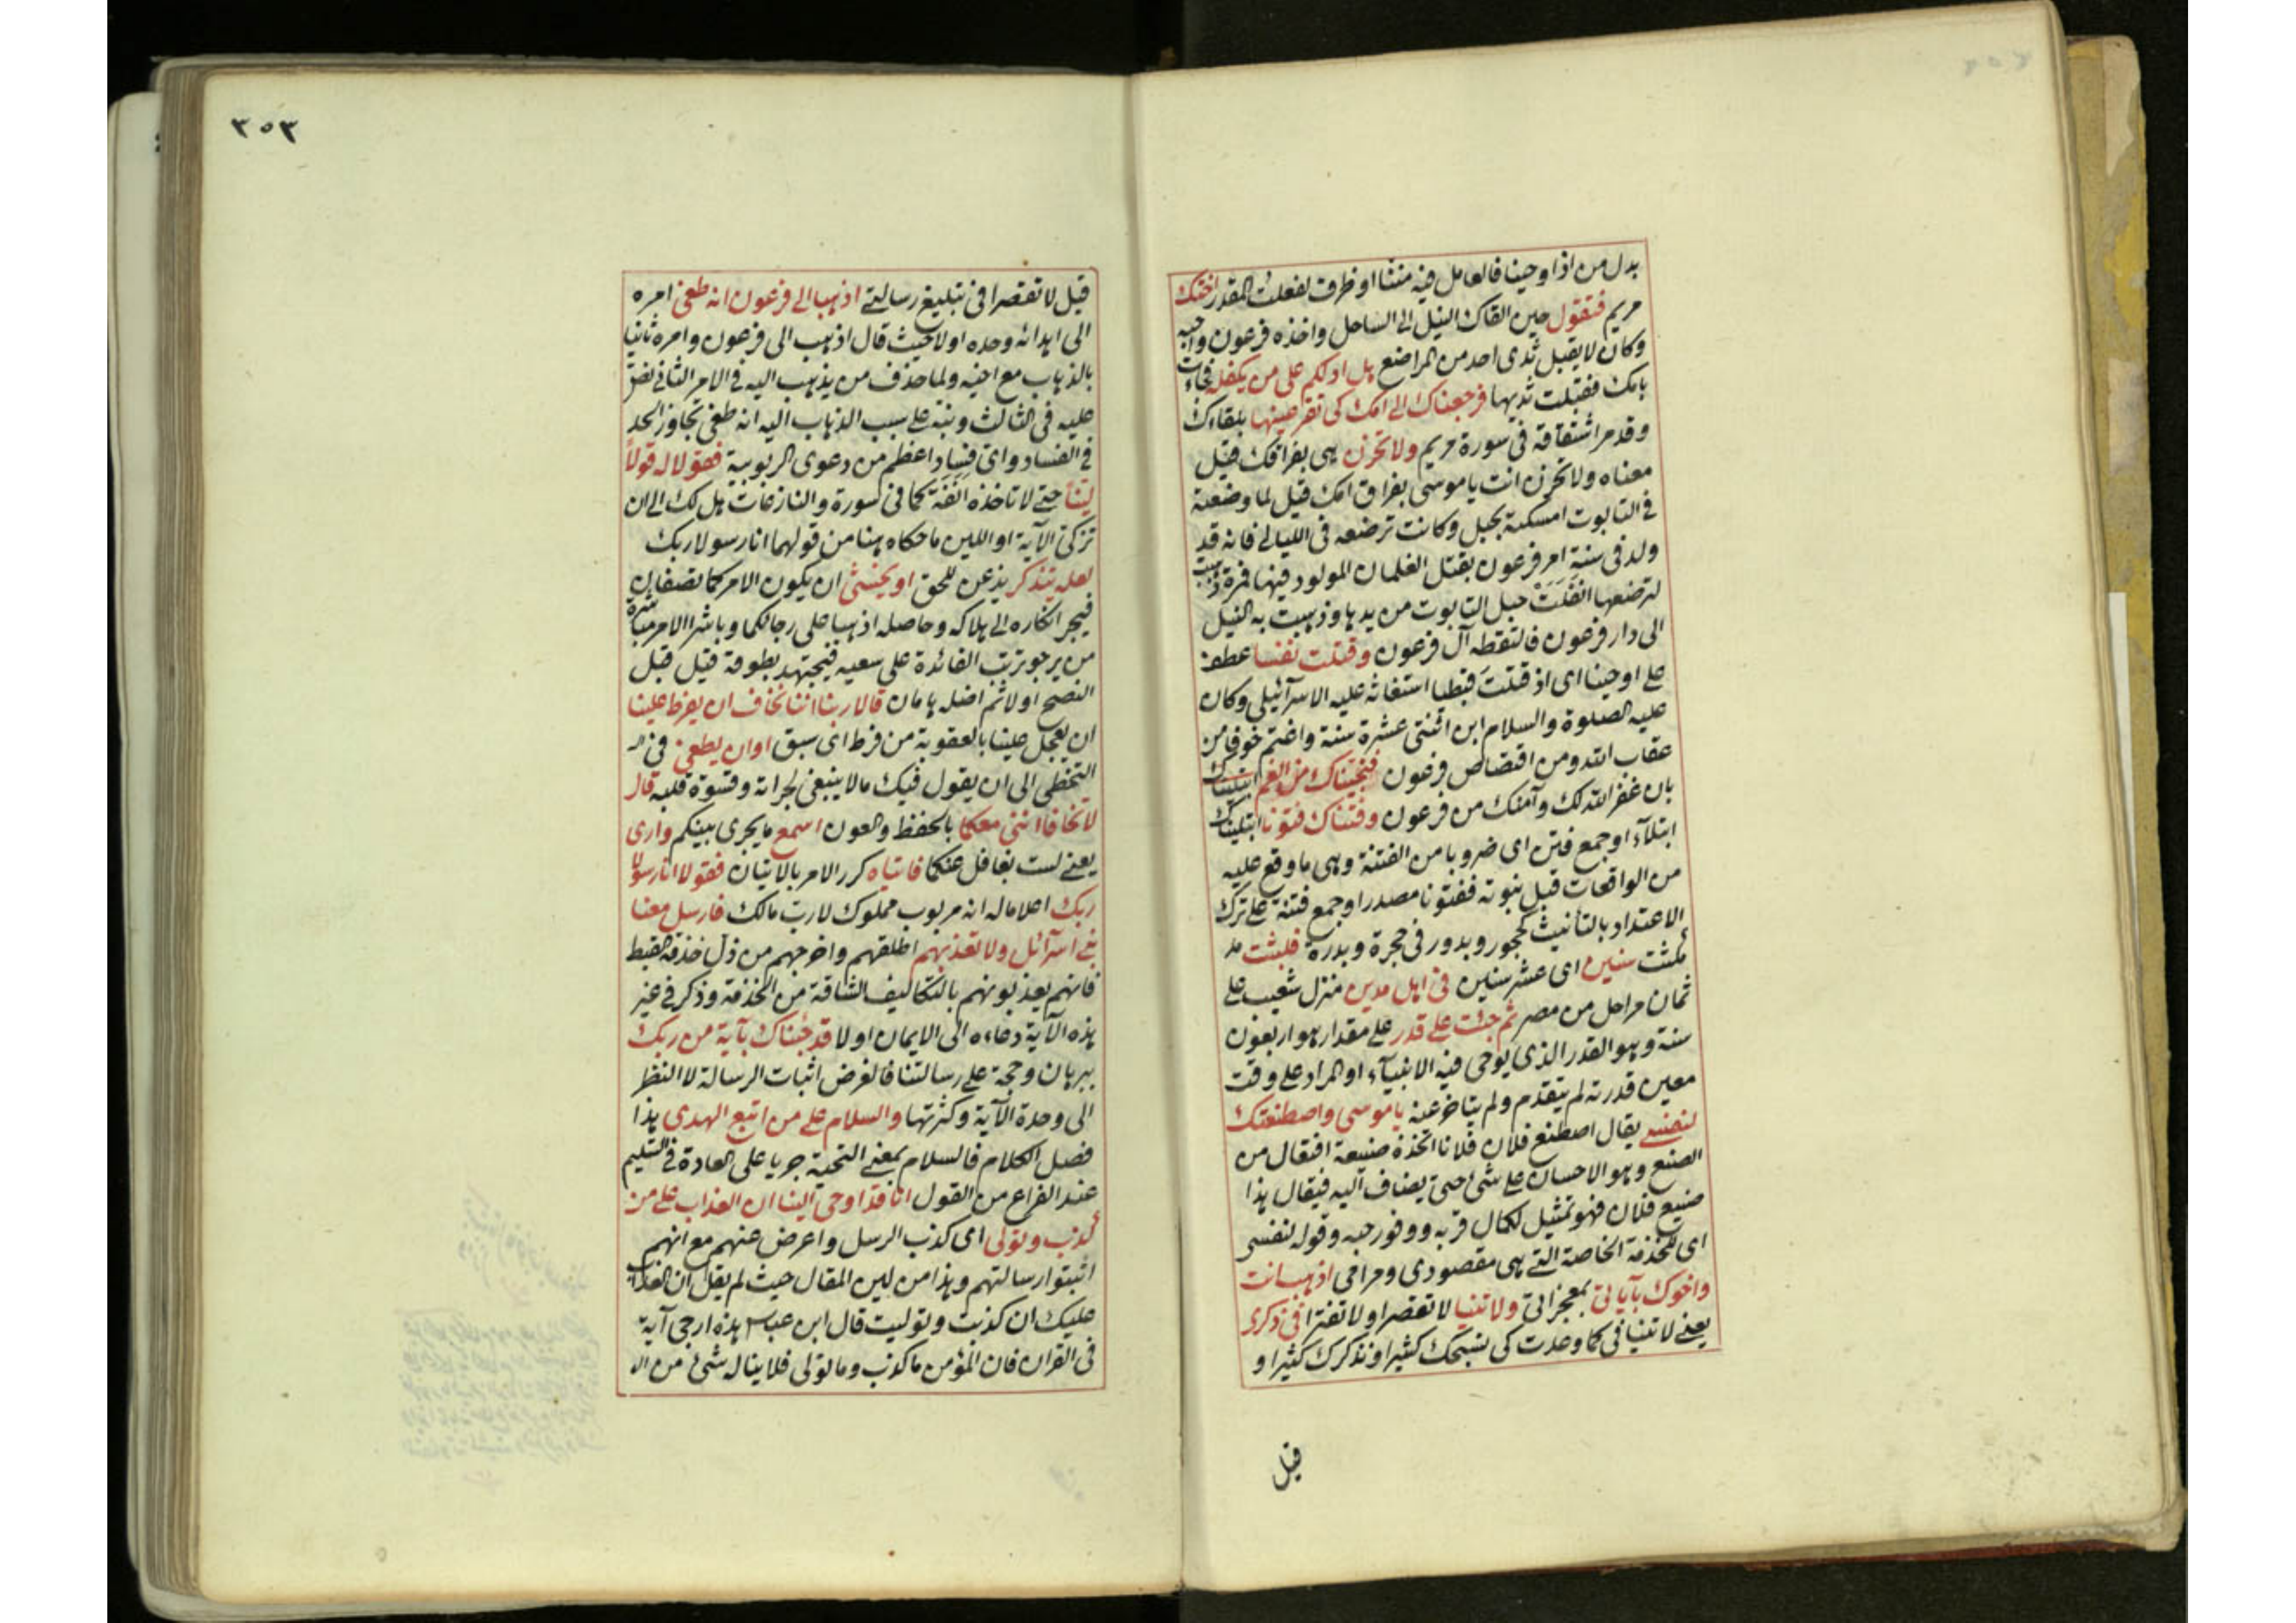 بدل من اذ اوحينا فالعامل فيه مننّا او ظرف لفعلت المقدر اختك
مريم فتقول حين القاك النيل الى الساحل واخذه فرعون واحبه
وكان لا يقبل ثدى احد من المراضع هل ادلكم على من يكفله فجاءت
بامك فقبلت ثديها فرجعناك الى امك كى تقر عينها بلقاءك
وقد مر اشتقاقه فى سورة مريم ولا تحزن هى بفراقك قيل
معناه ولا تحزن انت يا موسى بفراق امك قيل لما وضعته
فى التابوت امسكته بحبل وكانت ترضعه فى الليالى فانه قد
ولد فى سنة امر فرعون بقتل الغلمان المولود فيها فمرة ذهبت
لترضعها انفلت حبل التابوت من يدها وذهبت به النيل
الى دار فرعون فالتقطه آل فرعون وقتلت نفسا عطف
على اوحينا اى اذ قتلت قبطيا استغاثه عليه الاسرآئيلى وكان
عليه الصلوة والسلام ابن اثنتى عشرة سنة واغتم خوفا من
عقاب الله ومن اقتصاص فرعون فنجيناك من الغم ابتليناك
بان غفر الله لك وآمنك من فرعون وفتناك فتونا ابتليناك
ابتلآء او جمع فتن اى ضروبا من الفتنة وهى ما وقع عليه
من الواقعات قبل نبوته ففتونا مصدر او جمع فتنة على ترك
الاعتداد بالتأنيث كحجور وبدور فى حجرة وبدرة فلبثت
مكثت سنين اى عشر سنين فى اهل مدين منزل شعيب على
ثمان مراحل من مصر ثم جئت على قدر على مقدار هو اربعون
سنة وهو القدر الذى يوحى فيه الانبيآء او المراد على وقت
معين قدرته لم يتقدم ولم يتاخر عنه يا موسى واصطنعتك
لنفسى يقال اصطنع فلان فلانا اتخذه صنيعة افتعال من
الصنع وهو الاحسان على شئ حتى يضاف اليه فيقال هذا
صنيع فلان فهو تمثيل لكمال قربه ووفور حبه وقوله لنفسى
اى للخدمة الخاصة التى هى مقصودى ومرامى اذهب انت
واخوك بآياتى بمعجزاتى ولا تنيا لا تقصرا ولا تفترا فى ذكرى
يعنى لا تنيا فى كما وعدت كى نسبحك كثيرا ونذكرك كثيرا و
قيل
٣٥٣
قيل لا تقصرا فى تبليغ رسالتى اذهبا الى فرعون انه طغى امره
الى ابدائه وحده اولا حيث قال اذهب الى فرعون وامره ثانيا
بالذهاب مع اخيه ولما حذف من يذهب اليه فى الامر الثانى نص
عليه فى الثالث ونبه على سبب الذهاب اليه انه طغى تجاوز الحد
فى الفساد واى فساد اعظم من دعوى الربوبية فقولا له قولاً
ليناً حتى لا تاخذه انفة كما فى سورة والنازعات هل لك الى ان
تزكى الآية او اللين ما حكاه هنا من قولهما انا رسولا ربك
لعله يتذكر يذعن للحق او يخشى ان يكون الامر كما تصفان
فيجر انكاره الى هلاكه وحاصله اذهبا على رجائكما وباشرا الامر مباشرة
من يرجو ترتب الفائدة على سعيه فيجتهد بطوقه قيل قبل
النصح اولا ثم اضله هامان قالا ربنا اننا نخاف ان يفرط علينا
ان يعجل علينا بالعقوبة من فرط اى سبق او ان يطغى فى
التخطى الى ان يقول فيك ما لا ينبغى لجراته وقسوة قلبه قال
لا تخافا اننى معكما بالحفظ والعون اسمع ما يجرى بينكم وارى
يعنى لست بغافل عنكما فاتياه كرر الامر بالاتيان فقولا انا رسولا
ربك اعلاما له انه مربوب مملوك لا رب مالك فارسل معنا
بنى اسرآئل ولا تعذبهم اطلقهم واخرجهم من ذل خدمة القبط
فانهم يعذبونهم بالتكاليف الشاقة من الخدمة وذكر فى غير
هذه الآية دعاءه الى الايمان اولا قد جئناك بآية من ربك
ببرهان وحجة على رسالتنا فالغرض اثبات الرسالة لا النظر
الى وحدة الآية وكثرتها والسلام على من اتبع الهدى هذا
فصل الكلام فالسلام بمعنى التحية جريا على العادة فى التسليم
عند الفراغ من القول انا قد اوحى الينا ان العذاب على من
كذب وتولى اى كذب الرسل واعرض عنهم مع انهم
اثبتوا رسالتهم وهذا من لين المقال حيث لم يقل ان العذاب
عليك ان كذبت وتوليت قال ابن عباس هذه ارجى آية
فى القران فان المؤمن ما كذب وما تولى فلا يناله شئ من